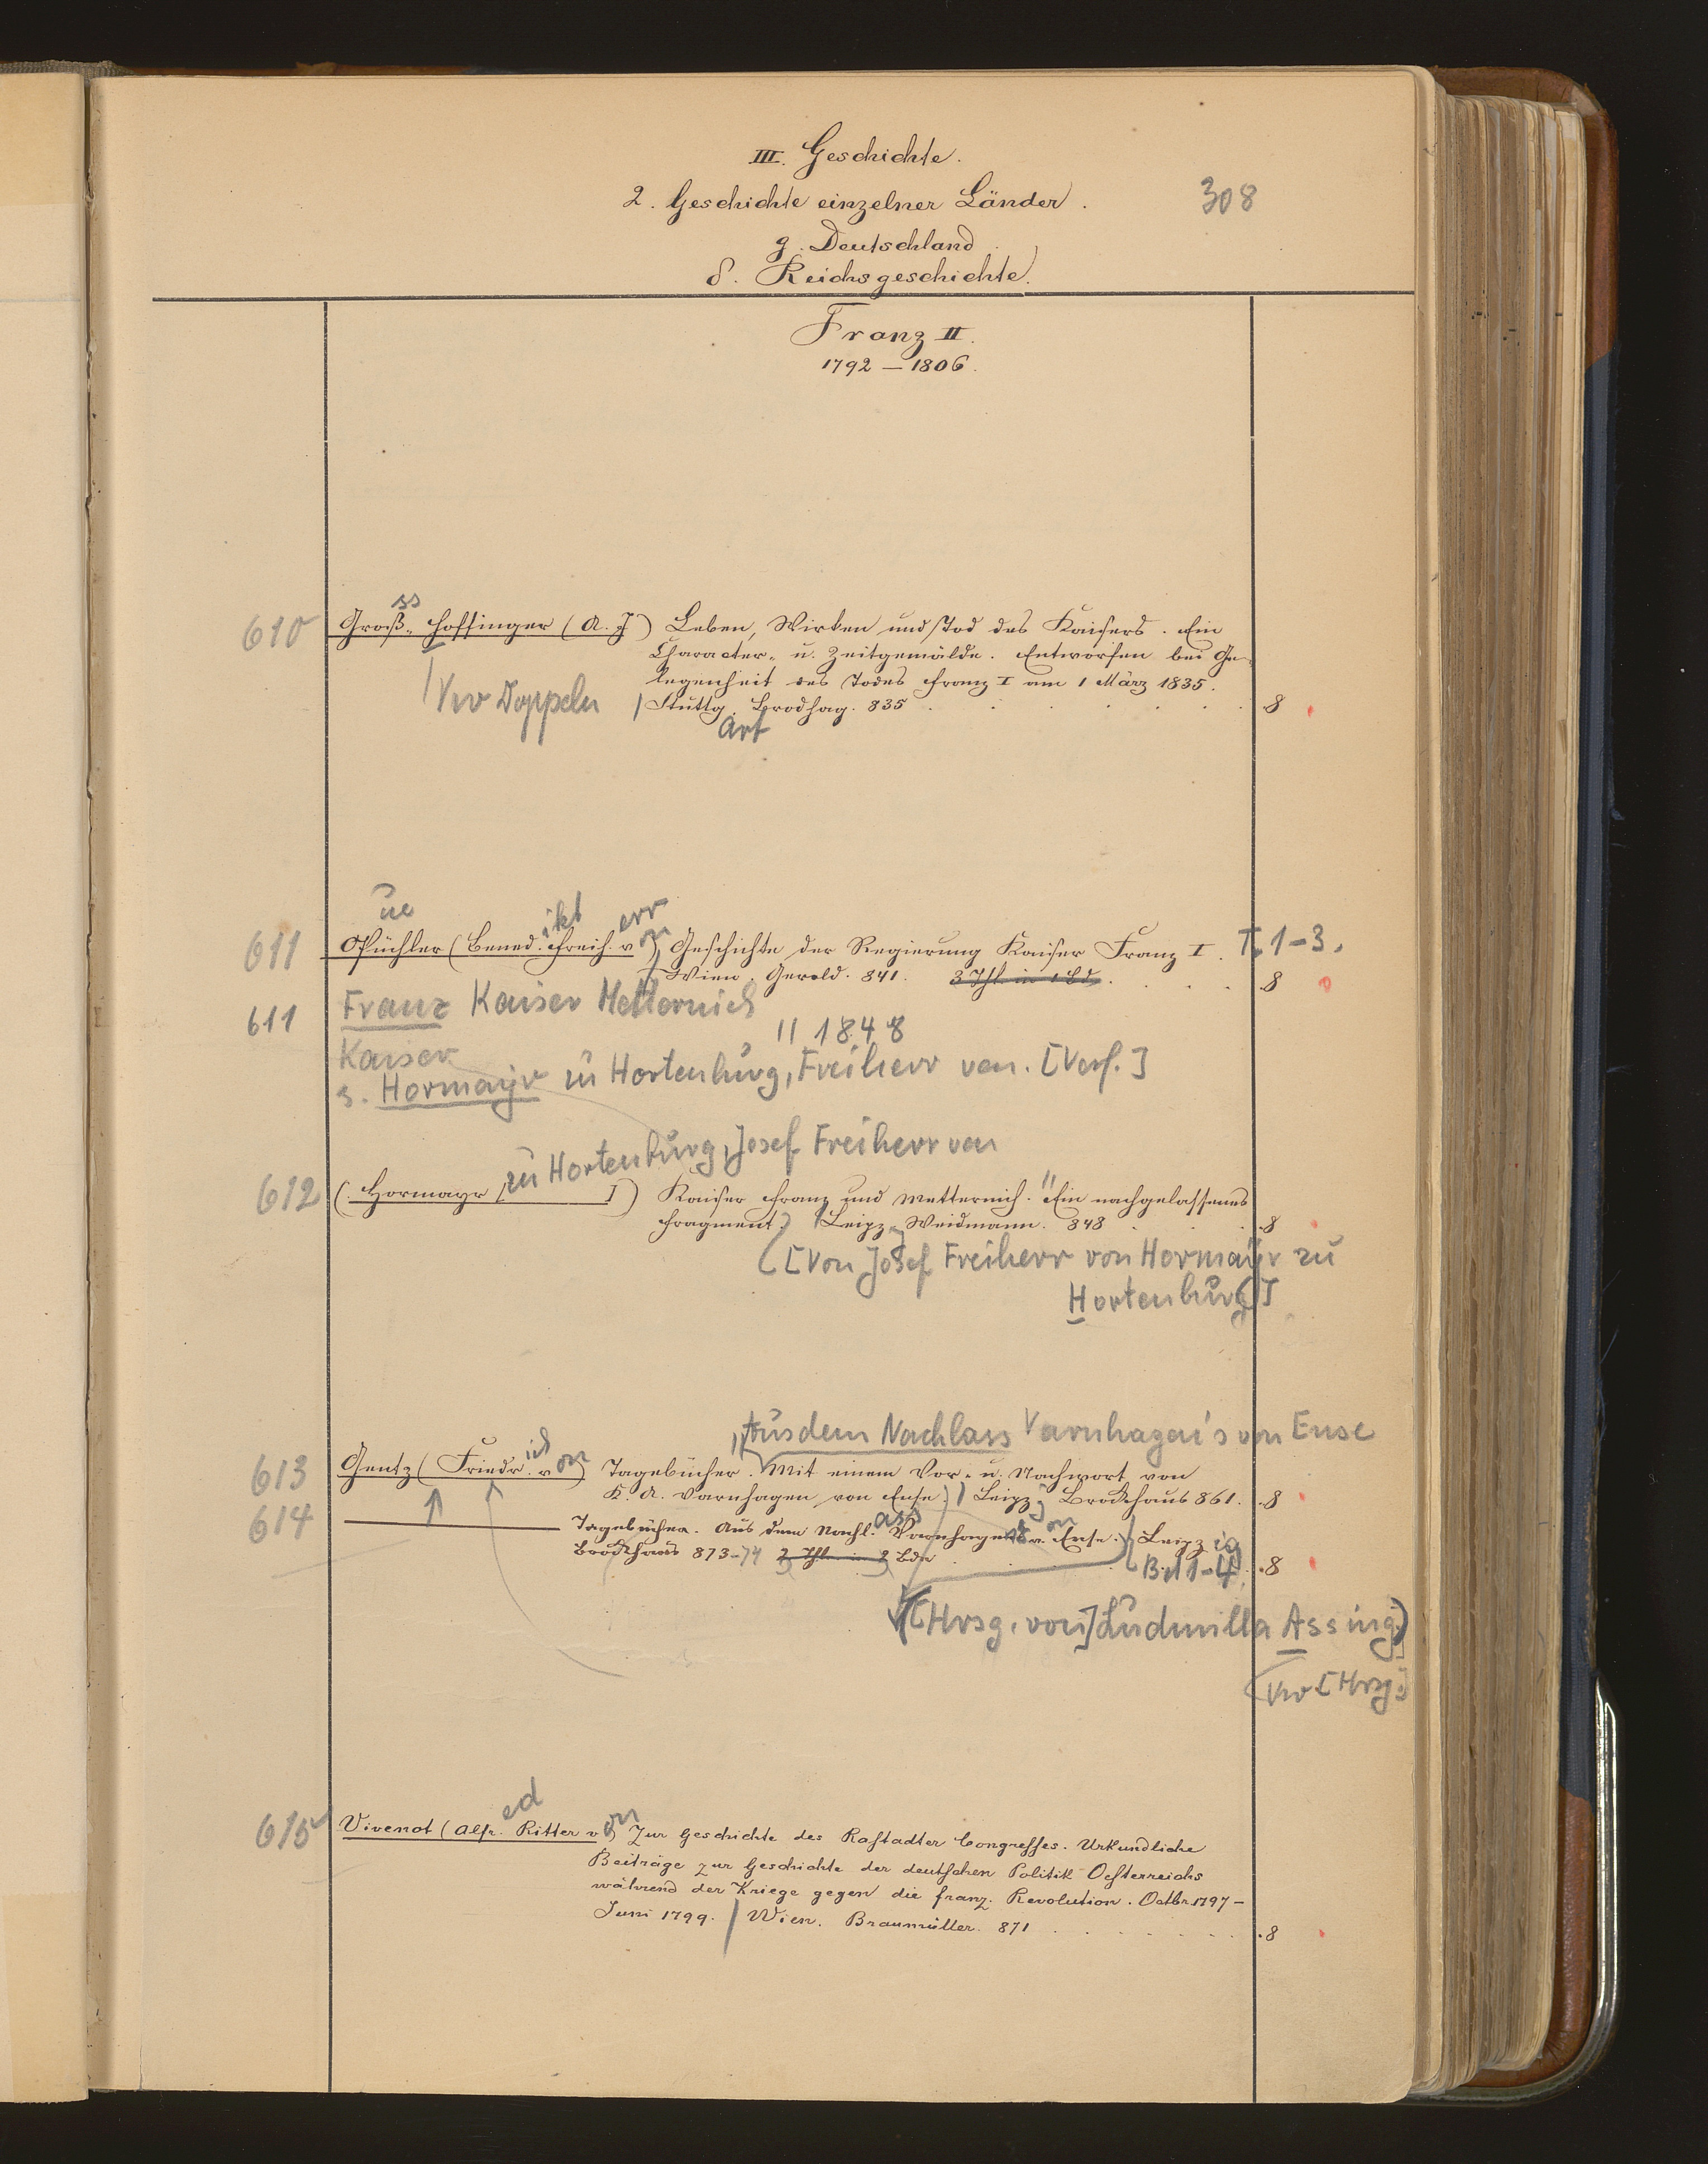 III. Geschichte.
2. Geschichte einzelner Länder.
308
g. Deutschland
δ. Reichsgeschichte.
Franz II.
1792 – 1806.
ss
610 Groß-Hoffinger (A. J) Leben, Wirken und Tod des Kaisers. Ein
Character- u. Zeitgemälde. Entworfen bei Ge-
legenheit des Todes Franz I am 1 März 1835.
Vw Doppeln / Stuttg. Brodhag. 835 . 8
art
ue ikt err
611 Püchler (Bened. Freih. v on) Geschichte der Regierung Kaiser Franz I. T. 1-3.
Wien. Gerold. 841. 3 Thl. in 1 Bd. . 8
611 Franz Kaiser Metternich
11 1848
Kaiser
s. Hormayr zu Hortenburg, Freiherr von. [Verf.]
zu Hortenburg, Josef Freiherr von
612 (. Hormayr [ ] ) Kaiser Franz und Metternich. "Ein nachgelassenes
Fragment. / Leipz g Weidmann. 848 . 8
([Von Josef Freiherr von Hormayr zu
Hortenburg)]
Aus dem Nachlass Varnhagen's von Ense
ich
613 Gentz (Friedr. v on) Tagebücher. Mit einem Vor- u. Nachwort von
K. A. Varnhagen von Ense.) / Leipz g Brockhaus 861. . 8
ass on
614 ——— Tagebücher. Aus dem Nachl. Varnhagens v. Ense. Leipz ig
Brockhaus 873-74 2 Thl. in 2 Bde Bd 1-4. . 8
([Hrsg. von] Ludmilla Assing.)
Vw [Hrsg.]
ed
615 Vivenot (Alfr. Ritter v on) Zur Geschichte des Rastadter Congresses. Urkundliche
Beiträge zur Geschichte der deutschen Politik Oesterreichs
während der Kriege gegen die franz. Revolution. Octbr. 1797 –
Juni 1799. / Wien. Braumüller. 871 . 8